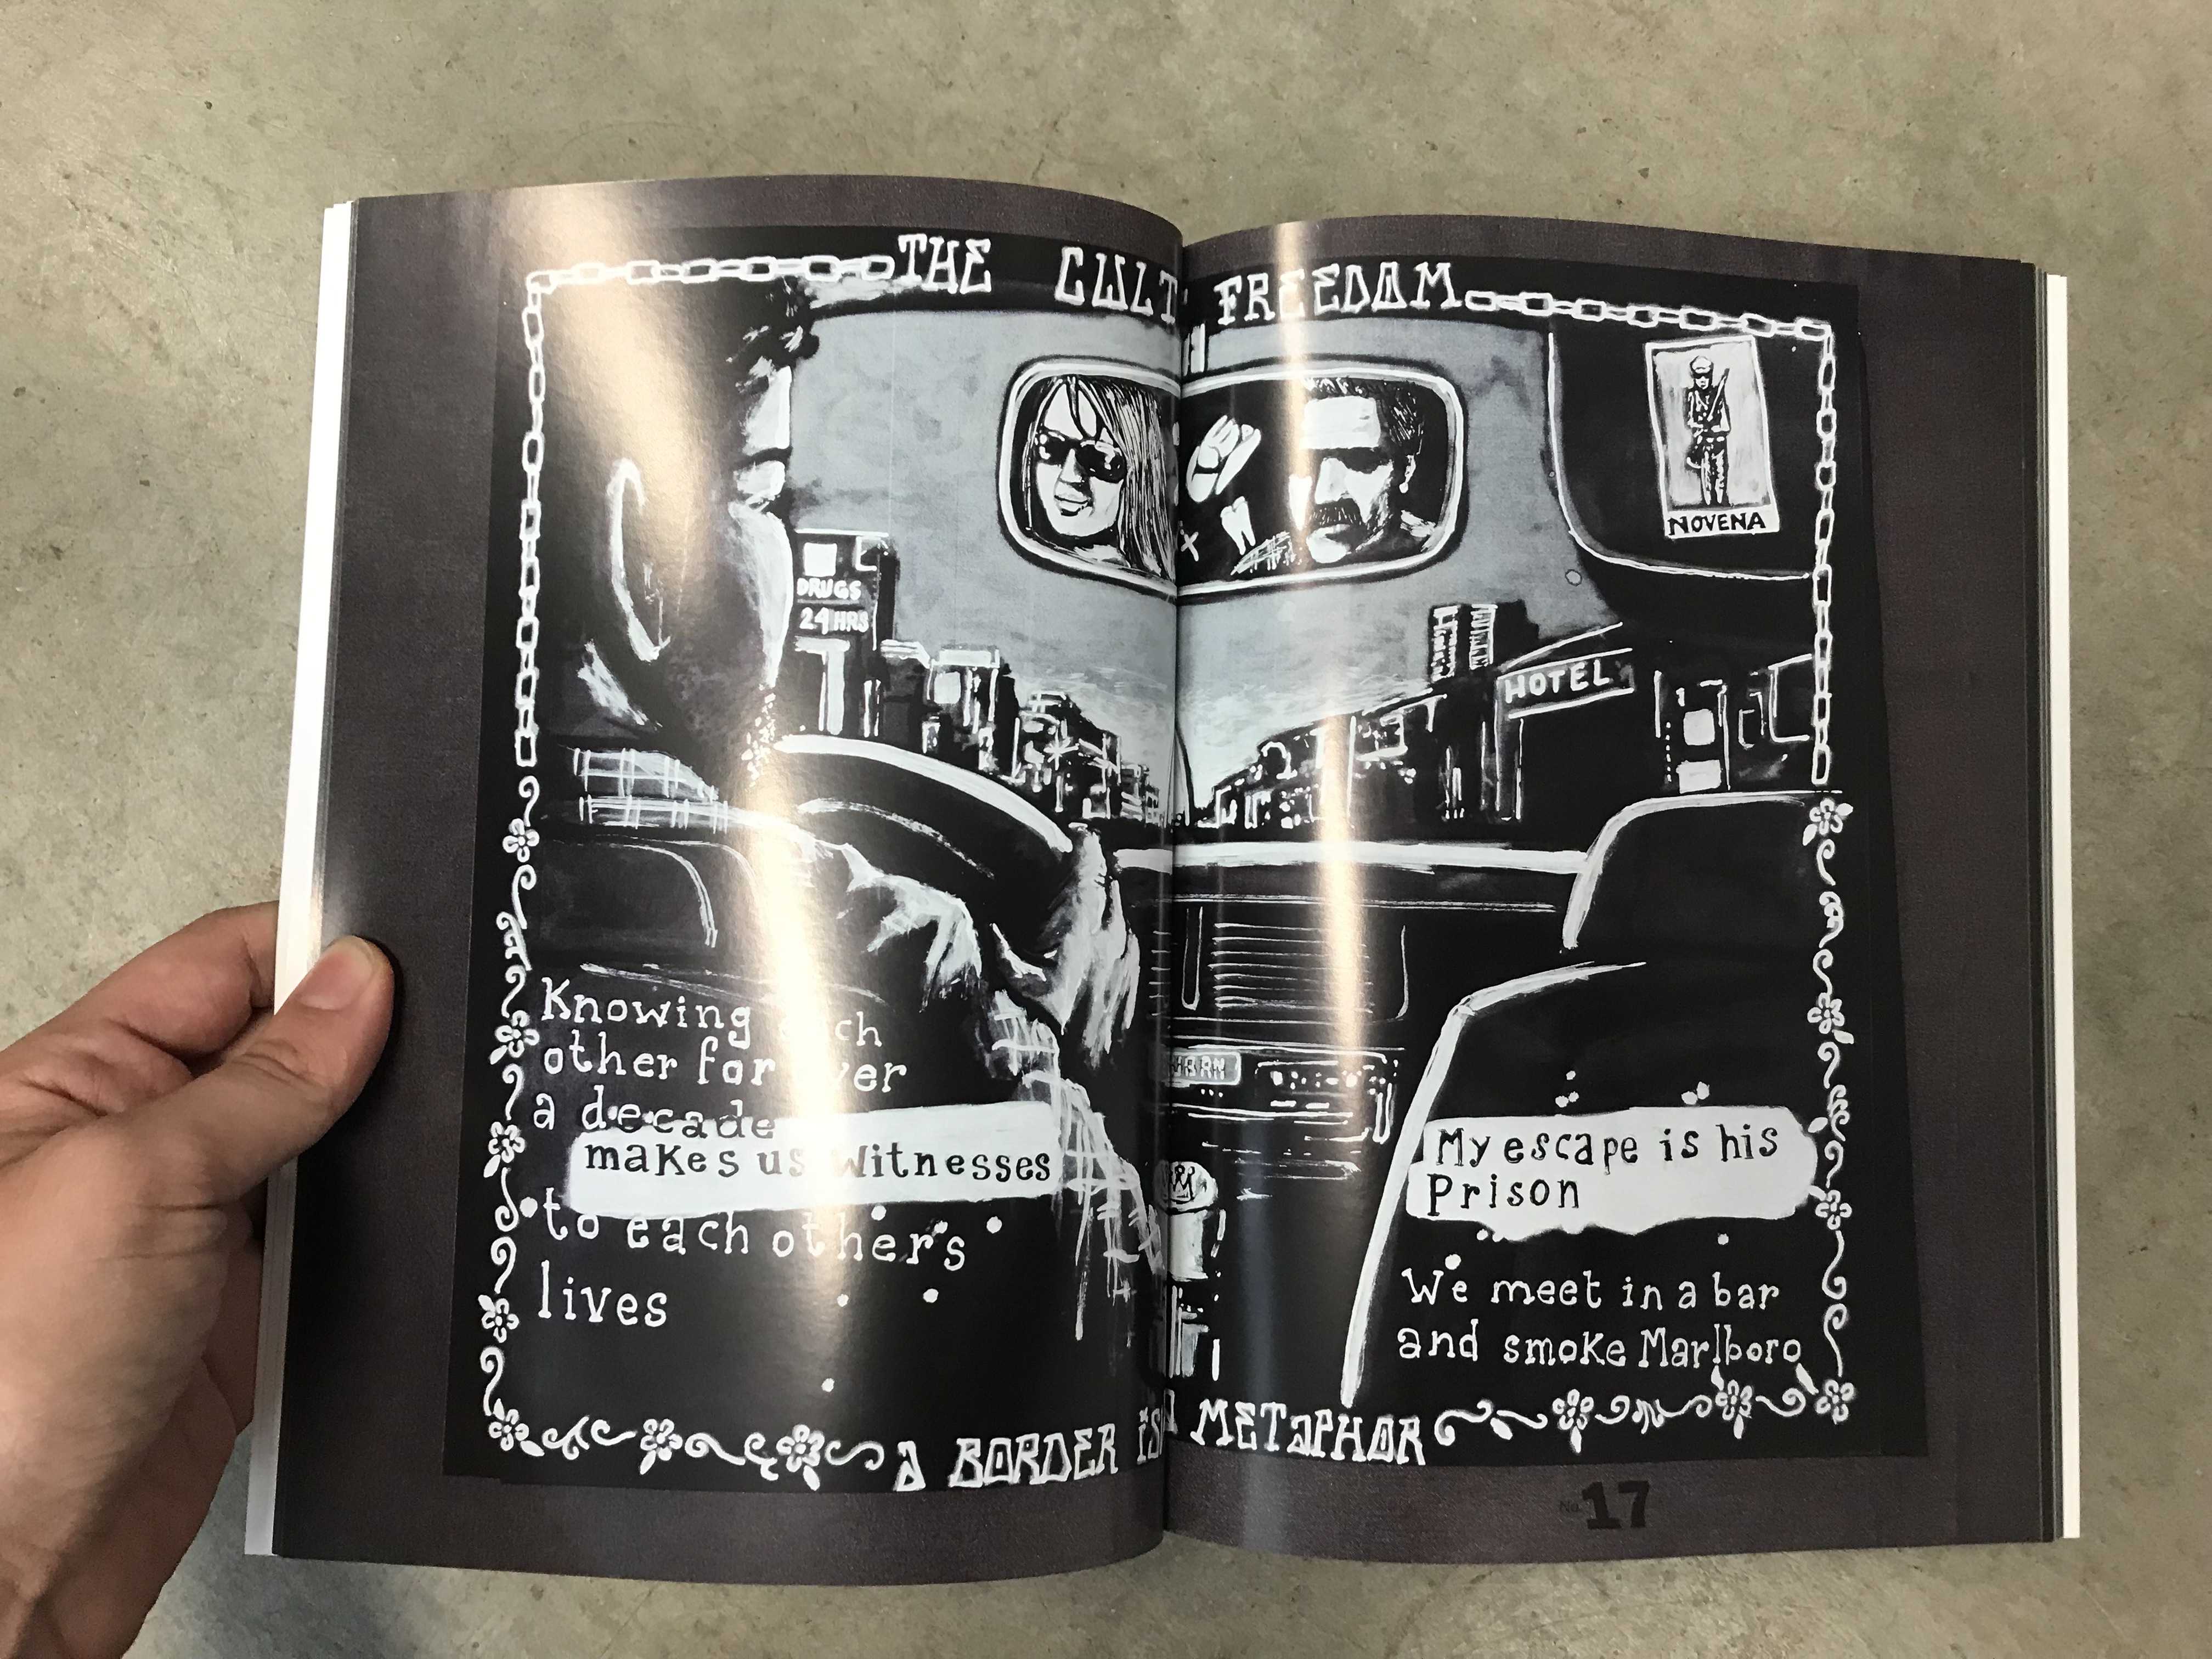 THE CULT FREEDOM
NOVENA
DRUGS
24 HRS
HOTEL
Knowing
other for
a decade
makes us Witnesses
to each other's
lives
My escape is his
Prison
We meet in a bar
and smoke Marlboro
A BORDER is A METAPHOR
No 17